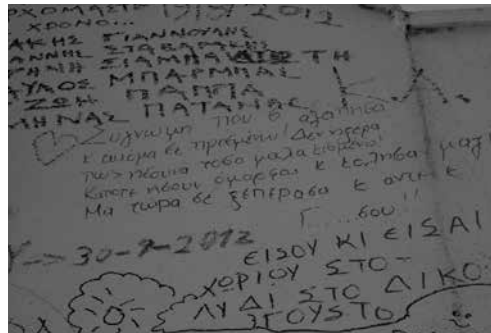 ΧΡΟΝΟ...
ΑΚΗΣ ΓΙΑΝΝΟΥΛΗΣ
ΑΝΝΗΣ ΣΤΑΒΑΡΑΚΗΣ
ΣΙΑΜΠΑ ΔΙΩΤΗ
ΑΥΛΟΣ ΜΠΑΡΜΠΑΣ
ΖΩΗ ΠΑΠΠΑ
ΜΗΝΑΣ ΠΑΤΑΜΑΣ
Συγνωμη που σ αγαπησα
κ ακομα σε περιμενω! Δεν ηξερα
πως ησουνα τοσο μαλακισμενο!
Καποτε ησουν ομορφος κ κολησα μαζι
Μα τωρα σε ξεπερασα κ αντε κ
Γ.....σου!!
30-9-2012
ΕΙΣΟΥ ΚΙ ΕΙΣΑΙ
ΧΟΡΙΟΥ ΣΤΟ
ΛΥΔΙ ΣΤΟ ΔΙΚΟ
ΓΟΥΣΤΟ